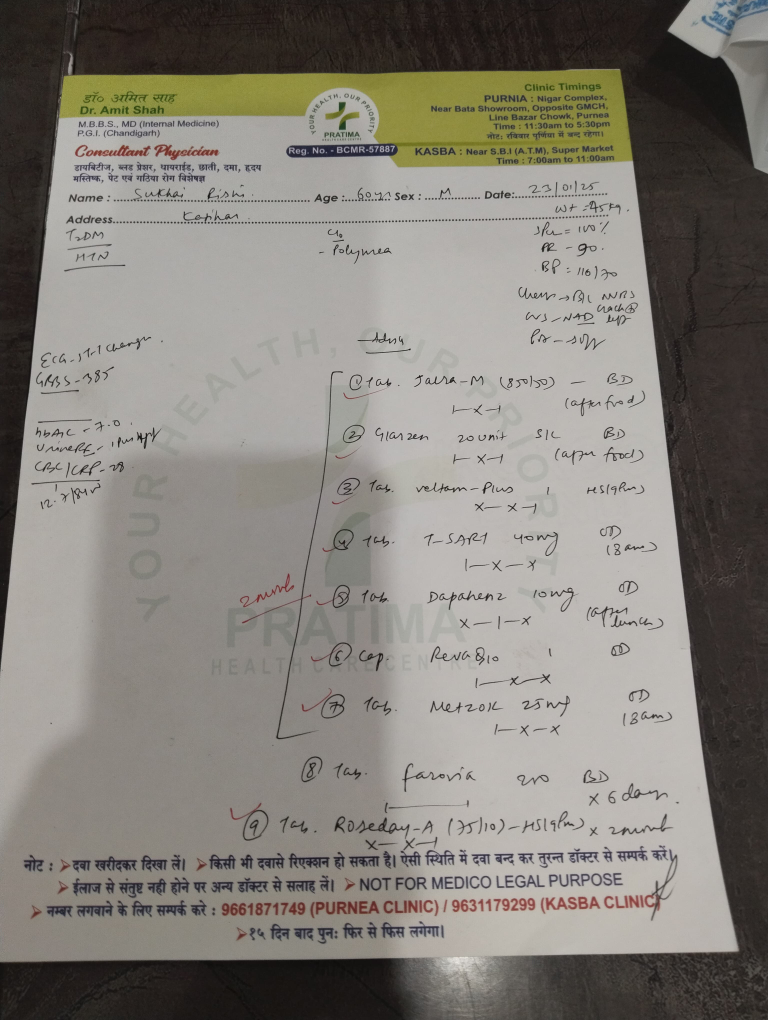 डॉ० अमित साह
Dr. Amit Shah
M.B.B.S., MD (Internal Medicine)
P.G.I. (Chandigarh)
Consultant Physician
डायबिटीज, ब्लड प्रेशर, थायराईड, छाती, दमा, हृदय
मस्तिष्क, पेट एवं गठिया रोग विशेषज्ञ
YOUR HEALTH, OUR PRIORITY
PRATIMA
HEALTH CARE CENTRE
Reg. No. - BCMR-57887
Clinic Timings
PURNIA : Nigar Complex,
Near Bata Showroom, Opposite GMCH,
Line Bazar Chowk, Purnea
Time : 11:30am to 5:30pm
नोट: रविवार पूर्णिया में बन्द रहेगा।
KASBA : Near S.B.I (A.T.M), Super Market
Time : 7:00am to 11:00am
Name : Sukhai Rishi Age : 60yr Sex : M Date: 23/01/25
Address Katihar
Wt = 45kg.
T2DM
HTN
C/o
- Polyurea
SPO2 = 100%
PR - 90.
BP = 110/70
Chest → B/L NVBS
CVS - NAD
P/A - soft
ECG - ST-T changes
GRBS - 385
HbA1C - 7.0
Urine R/E -
CBC/CRP - 28
Adv
① Tab. Jalra-M (850/50) - BD
1-X-1 (after food)
② Glarzen 20 unit S/C BD
1-X-1 (after food)
③ Tab. Veltam-Plus 1 HS (9pm)
X-X-1
④ Tab. T-SART 40mg OD
1-X-X (8am)
⑤ Tab. Dapahenz 10mg OD
X-1-X (after lunch)
⑥ Cap. Reva Q10 1 OD
1-X-X
⑦ Tab. Metzok 25mg OD
1-X-X (8am)
2 month
⑧ Tab. farovia 200 BD
x 6 days.
⑨ Tab. Roseday-A (75/10) - HS (9pm) x 2 month
X-X-1
YOUR HEALTH, OUR PRIORITY
PRATIMA
HEALTH CARE CENTRE
नोट : दवा खरीदकर दिखा लें। किसी भी दवासे रिएक्शन हो सकता है। ऐसी स्थिति में दवा बन्द कर तुरन्त डॉक्टर से सम्पर्क करें।
ईलाज से संतुष्ट नही होने पर अन्य डॉक्टर से सलाह लें। NOT FOR MEDICO LEGAL PURPOSE
नम्बर लगवाने के लिए सम्पर्क करे : 9661871749 (PURNEA CLINIC) / 9631179299 (KASBA CLINIC)
१५ दिन बाद पुनः फिर से फिस लगेगा।